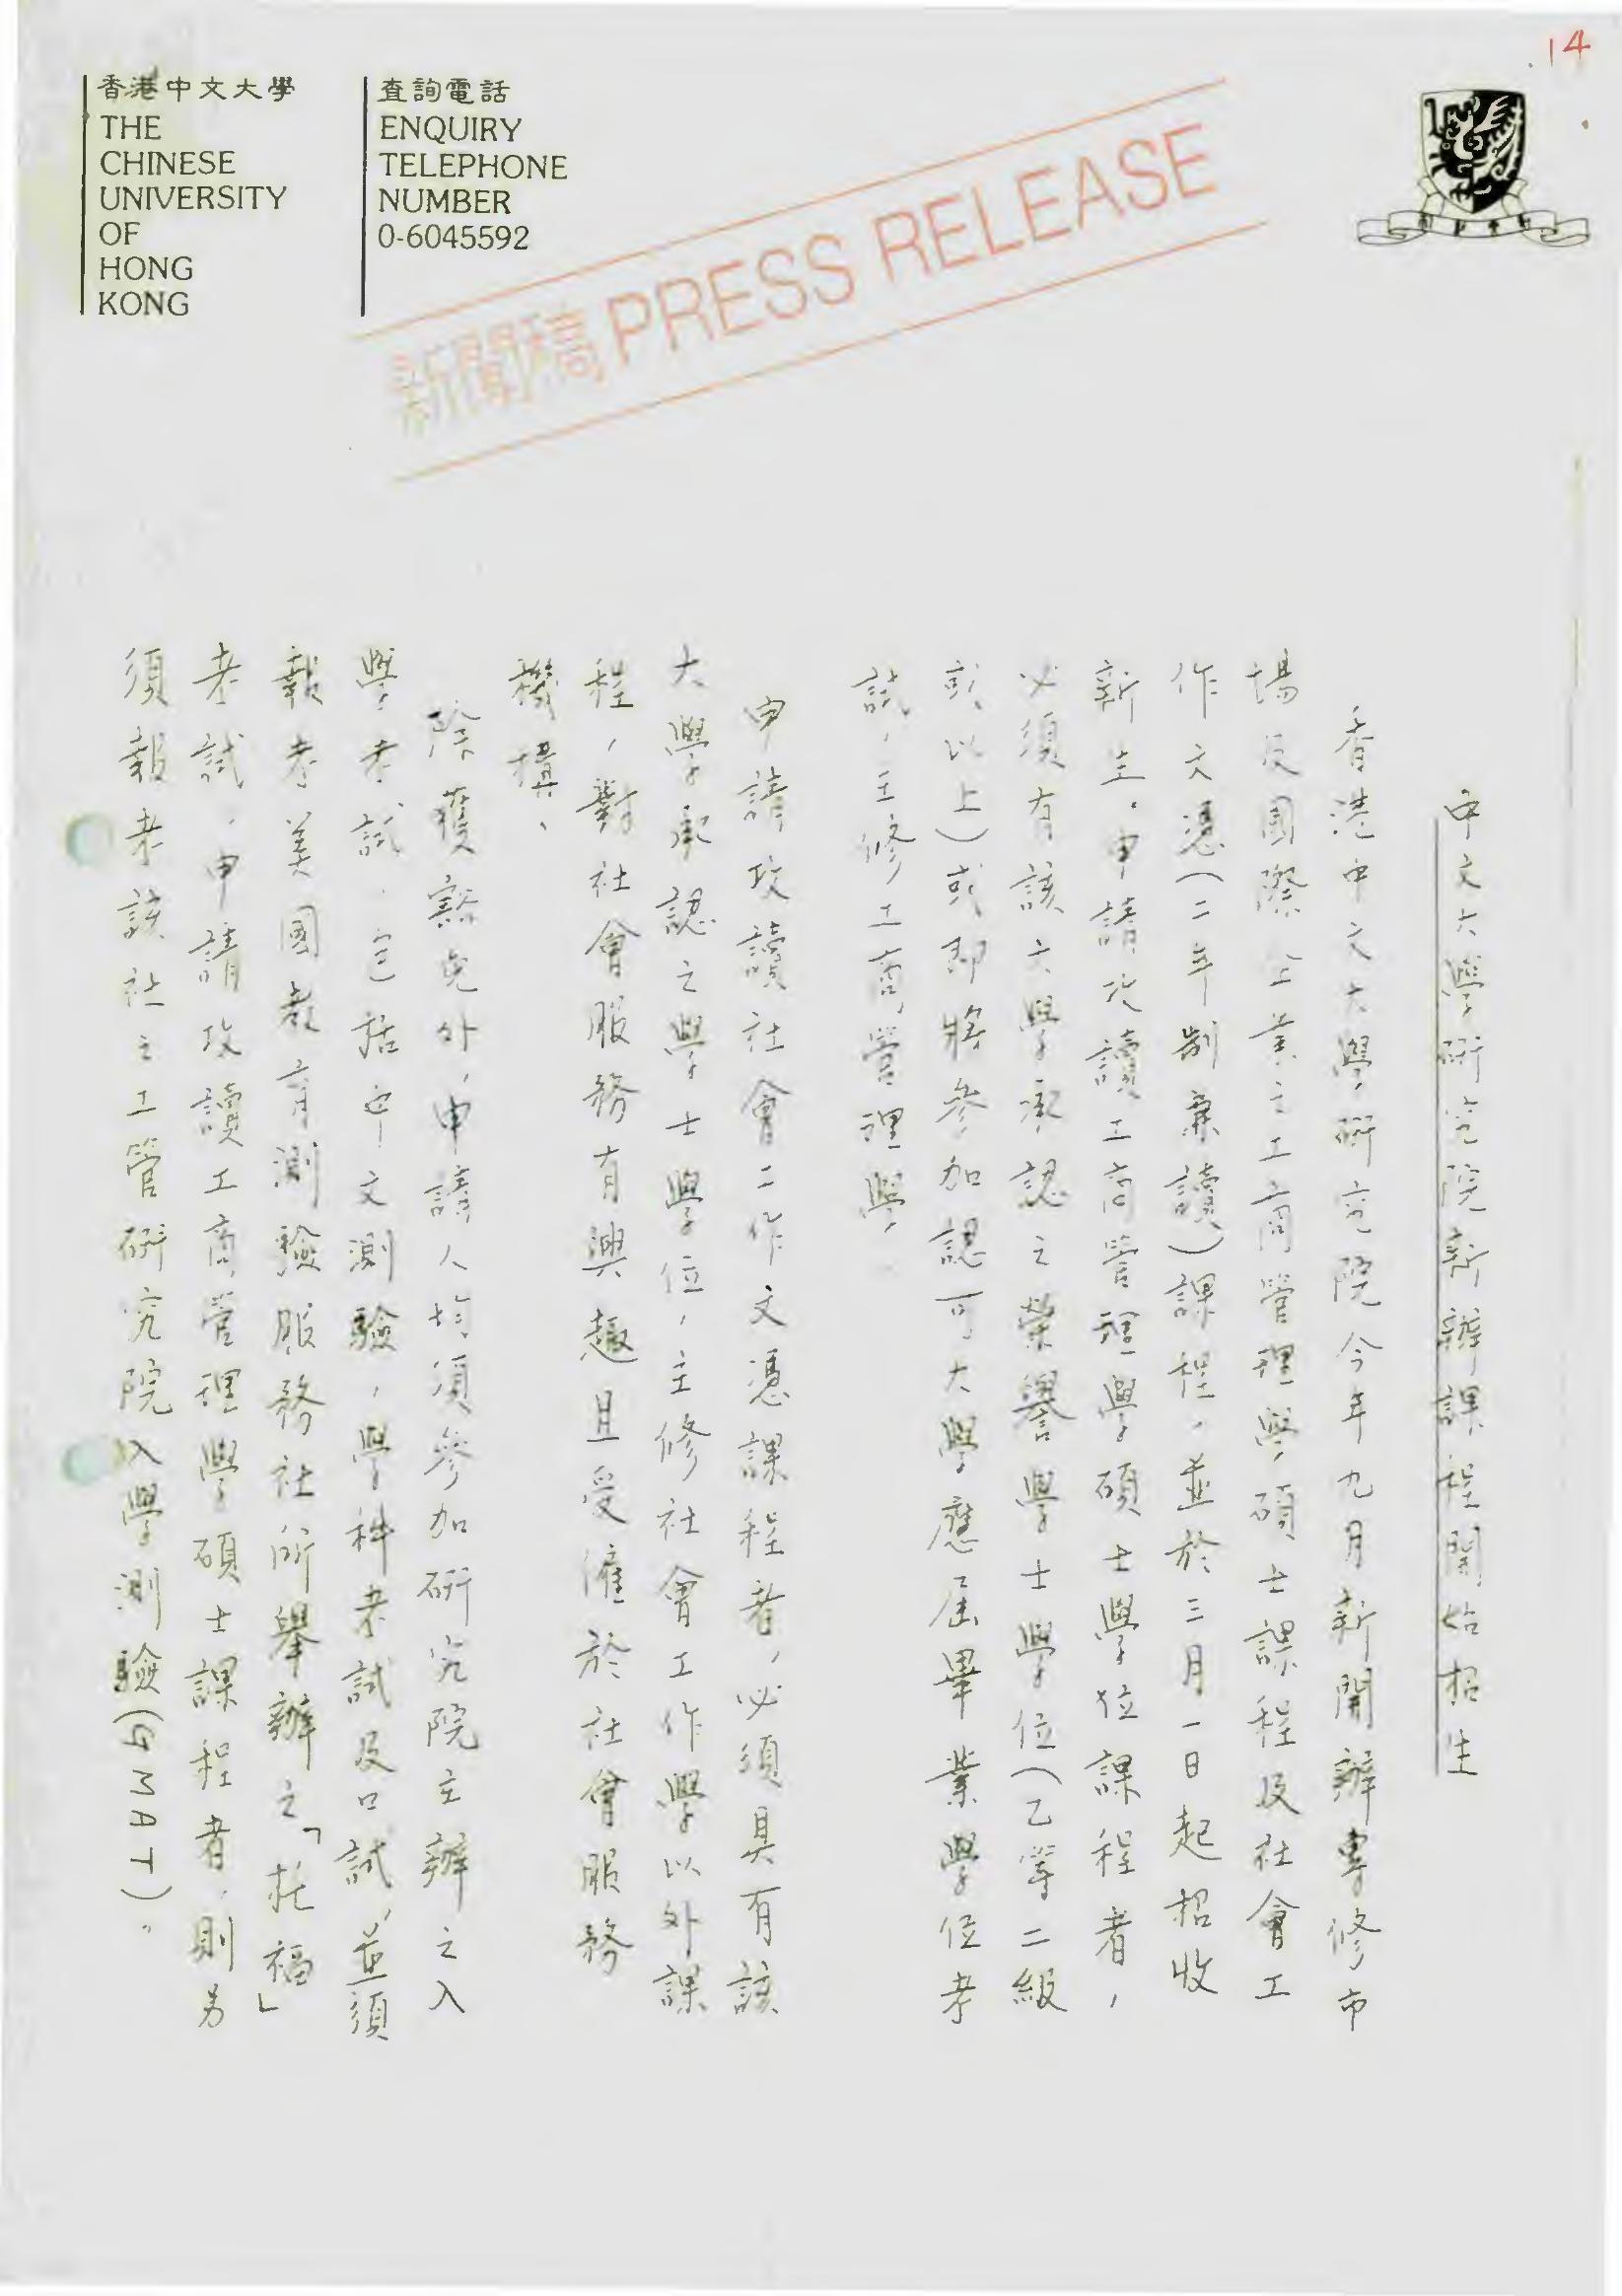 14
香港中文大學
THE
CHINESE
UNIVERSITY
OF
HONG
KONG
查詢電話
ENQUIRY
TELEPHONE
NUMBER
0-6045592
新聞稿 PRESS RELEASE
中文大學研究院新辦課程開始招生
香港中文大學研究院今年九月新開辦專修市
場及國際企業之工商管理學碩士課程及社會工
作文憑(二年制兼讀)課程,並於三月一日起招收
新生.申請攻讀工商管理學碩士學位課程者,
必須有該大學承認之榮譽學士學位(乙等二級
或以上)或即將參加認可大學應屆畢業學位考
試,主修工商管理學,
申請攻讀社會工作文憑課程者,必須具有該
大學承認之學士學位,主修社會工作學以外課
程,對社會服務有興趣且受僱於社會服務
機構、
除獲豁免外,申請人均須參加研究院主辦之入
學考試.包括中文測驗,學科考試及口試,並須
報考美國教育測驗服務社所舉辦之「托福」
考試.申請攻讀工商管理學碩士課程者,則另
須報考該社之工管研究院入學測驗(GMAT)。